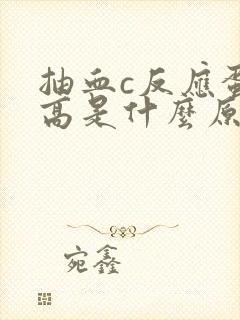 抽血c反應蛋
高是什麼原
宛鑫